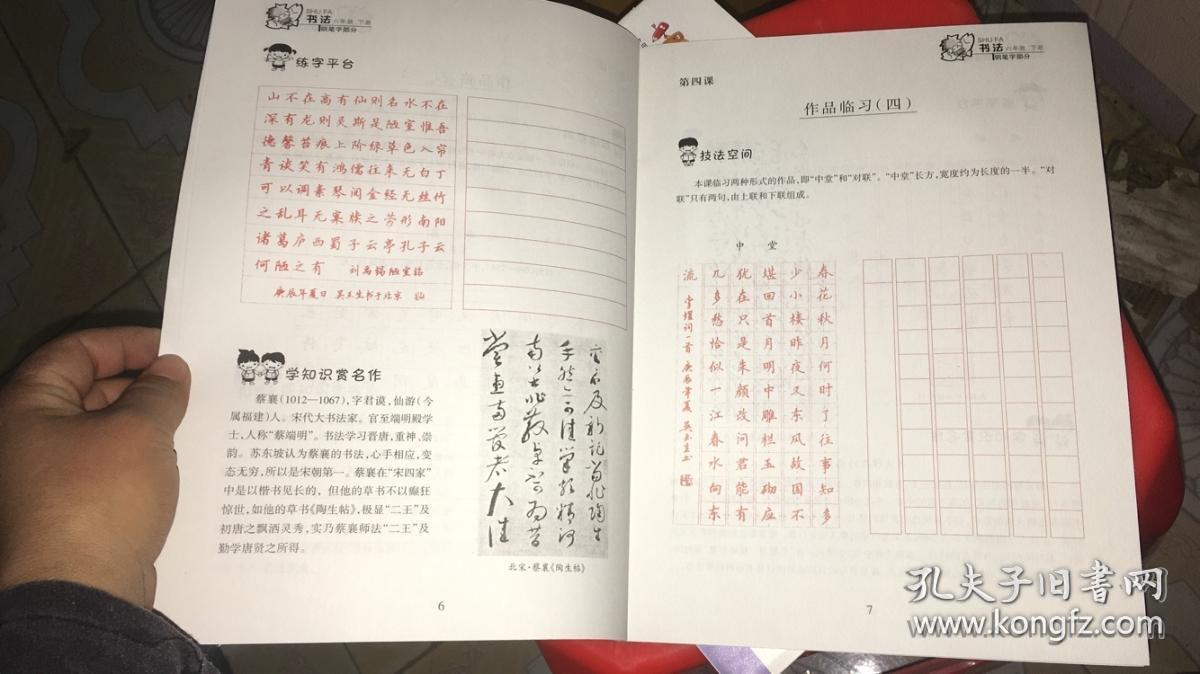 SHU FA
书法 六年级 下册
钢笔字部分
练字平台
山不在高有仙则名水不在
深有龙则灵斯是陋室惟吾
德馨苔痕上阶绿草色入帘
青谈笑有鸿儒往来无白丁
可以调素琴阅金经无丝竹
之乱耳无案牍之劳形南阳
诸葛庐西蜀子云亭孔子云
何陋之有 刘禹锡陋室铭
庚辰年夏日 吴玉生书于北京
学知识赏名作
蔡襄(1012—1067),字君谟,仙游(今
属福建)人。宋代大书法家。官至端明殿学
士,人称“蔡端明”。书法学习晋唐,重神、崇
韵。苏东坡认为蔡襄的书法,心手相应,变
态无穷,所以是宋朝第一。蔡襄在“宋四家”
中是以楷书见长的,但他的草书不以癫狂
惊世,如他的草书《陶生帖》,极显“二王”及
初唐之飘洒灵秀,实乃蔡襄师法“二王”及
勤学唐贤之所得。
北宋·蔡襄《陶生帖》
6
SHU FA
书法 六年级 下册
钢笔字部分
第四课
作品临习(四)
技法空间
本课临习两种形式的作品,即“中堂”和“对联”。“中堂”长方,宽度约为长度的一半。“对
联”只有两句,由上联和下联组成。
中 堂
春花秋月何时了往事知多
少小楼昨夜又东风故国不
堪回首月明中雕栏玉砌应
犹在只是朱颜改问君能有
几多愁恰似一江春水向东
流 李煜词一首 庚辰年夏 吴玉生书
7
孔夫子旧书网
www.kongfz.com